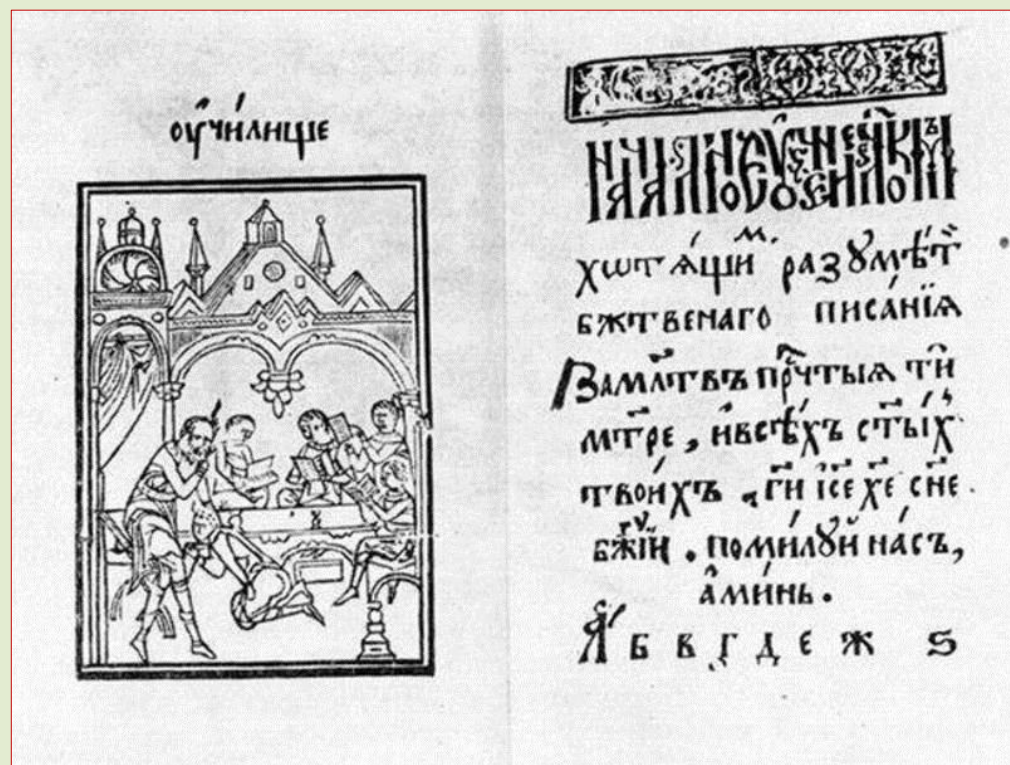 оучи́лище
нача́лное оуче́нїе чл҃кѡмъ
хѡтѧ́щимъ разꙋмѣ́ти
бжтвенаго писа́нїѧ
Замл҃твъ прⷱ҇тыѧ тѝ
мт҃ре, ивсѣ́хъ ст҃ы́хъ
твои́хъ . гн҃и і҆с҃е хе҃ сн҃е
бж҃їи . поми́лꙋй на́съ,
а҆ми́нь.
А Б В Г Д Е Ж Ѕ